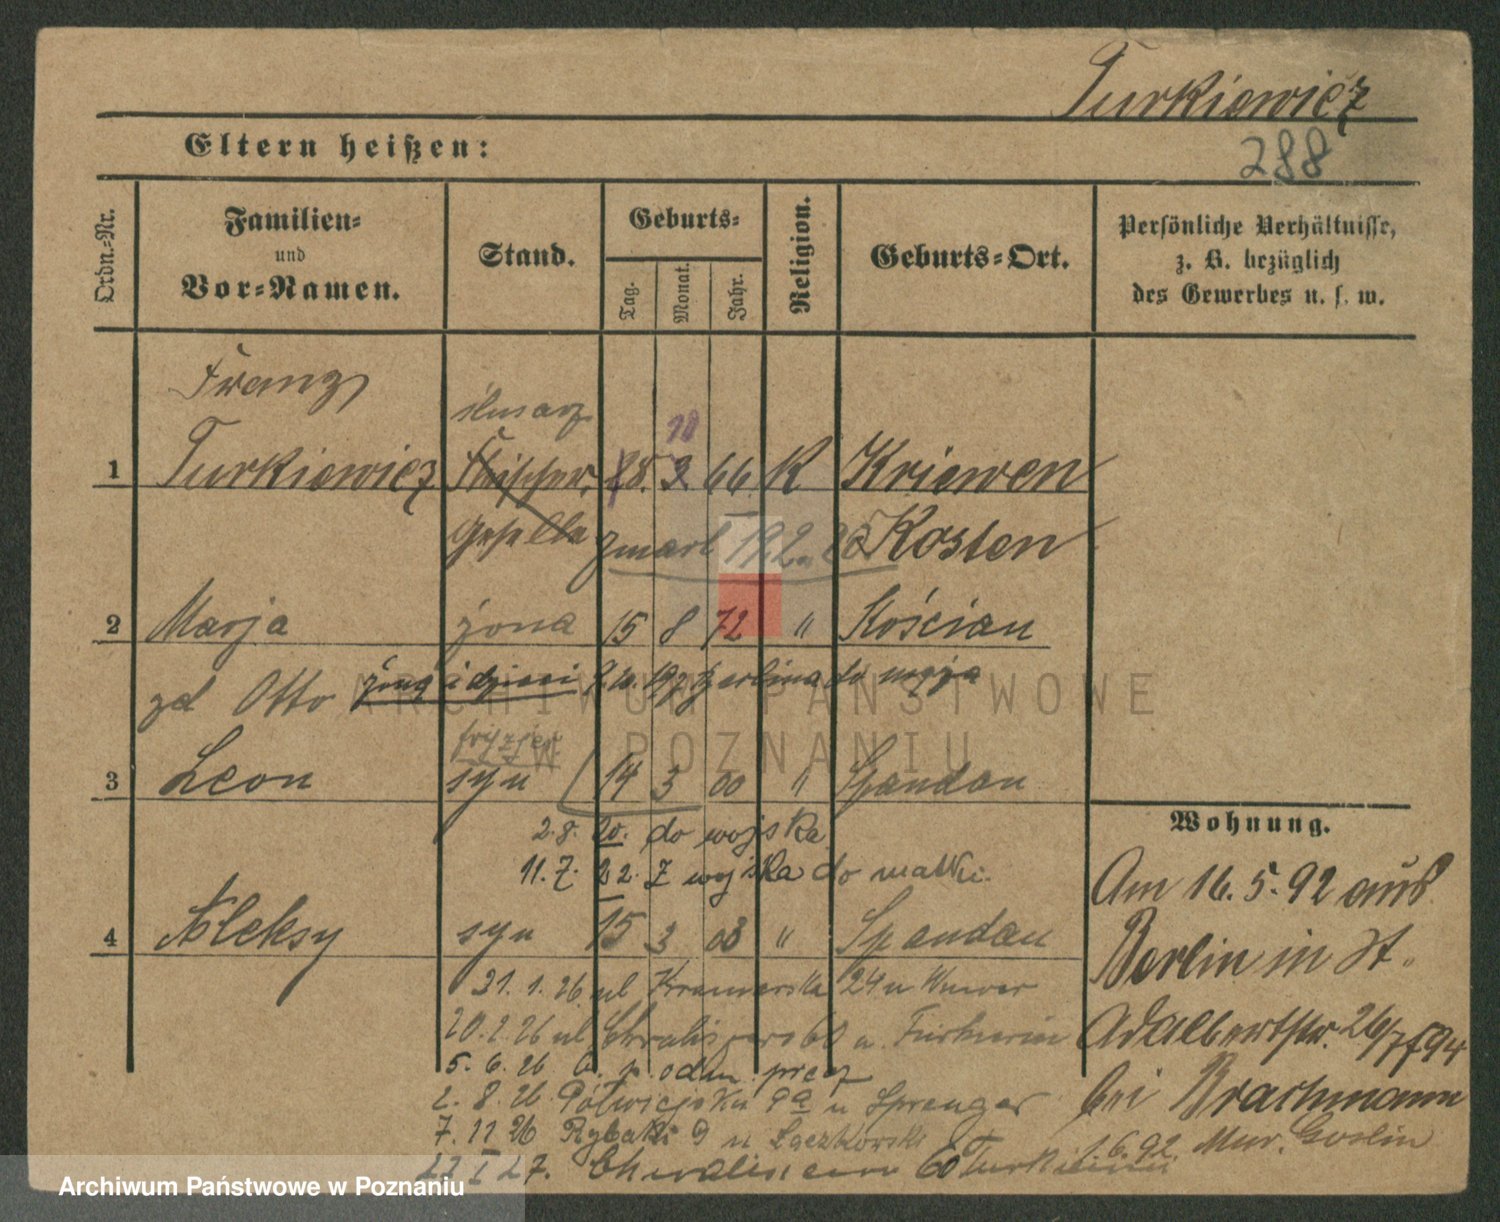 Turkiewicz
288
Eltern heißen:
Ordn.-Nr.
Familien-
und
Vor-Namen.
Stand.
Geburts-
Tag.
Monat.
Jahr.
Religion.
Geburts-Ort.
Persönliche Verhältnisse,
z. B. bezüglich
des Gewerbes u. s. w.
Franz
ślusarz
10
1 Turkiewicz Tischler 28. 2 66 K Kriewen
Geselle zmarł 192 Kosten
2 Marja żona 15 8 72 " Kościan
zd Otto żona i dzieci z Berlina do męża
fryzjer
3 Leon syn 14 3 00 " Spandau
2.8. 20. do wojska
11.7. 22. z wojska do matki.
4 Aleksy syn 15 3 03 " Spandau
21. 1. 26 ul Kramarska 24 u
20. 2. 26 ul 60 u
5. 6. 26
2. 8. 26 Półwiejska 9a u Sprenger
7. 11 26 Rybaki 9 u Łączkowski
22 I 27. 60
Wohnung.
Am 16. 5. 92 aus
Berlin in St.
Adalbertstr. 26/7 f 94
bei Brachmann
1.6.92. Mur. Goslin
ARCHIWUM PAŃSTWOWE
W POZNANIU
Archiwum Państwowe w Poznaniu